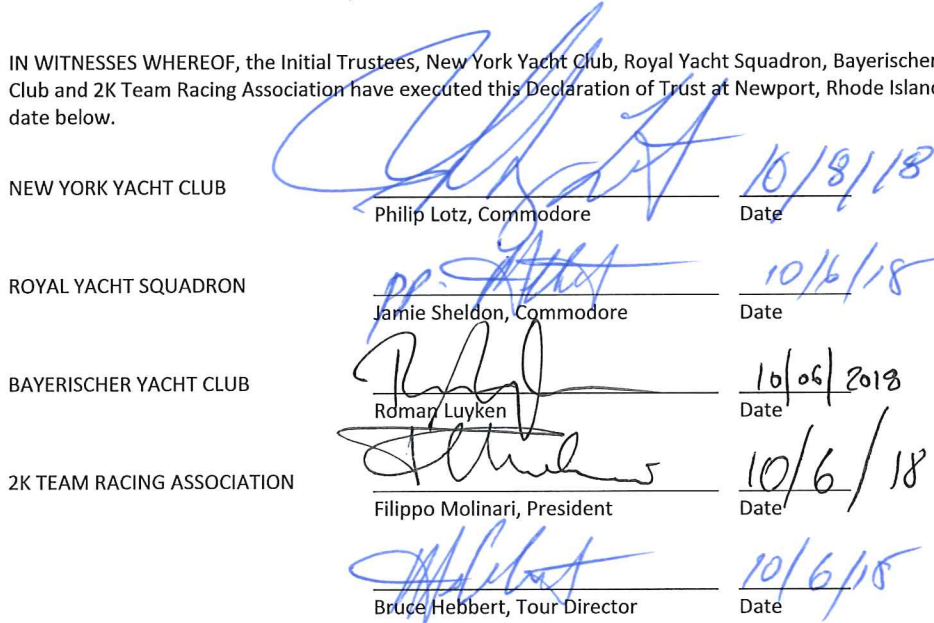 IN WITNESSES WHEREOF, the Initial Trustees, New York Yacht Club, Royal Yacht Squadron, Bayerischer
Club and 2K Team Racing Association have executed this Declaration of Trust at Newport, Rhode Island
date below.
10/8/18
NEW YORK YACHT CLUB
Philip Lotz, Commodore Date
pp. 10/6/18
ROYAL YACHT SQUADRON
Jamie Sheldon, Commodore Date
10/06/2018
BAYERISCHER YACHT CLUB
Roman Luyken Date
10/6/18
2K TEAM RACING ASSOCIATION
Filippo Molinari, President Date
10/6/18
Bruce Hebbert, Tour Director Date